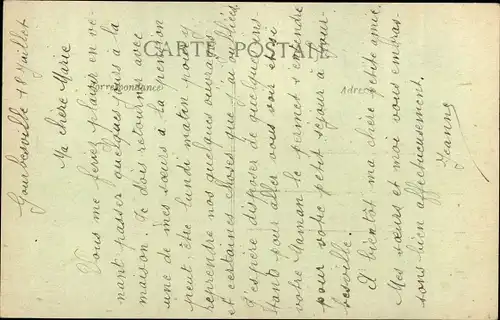 CARTE POSTALE
Correspondance
Gourbesville 18 Juillet
Ma chère Marie
Vous me feriez plaisir en ve-
nant passer quelques jours à la
maison. Je dois retourner avec
une de mes sœurs à la pension
peut être lundi matin pour y
reprendre nos quelques ouvrages
et certaines choses que j'ai oubliées
J'espère disposer de quelques ins-
tants pour aller vous voir et si
votre Maman le permet s'entendre
pour votre petit séjour à Gour-
besville.
A bientôt ma chère petite amie
Mes sœurs et moi vous embras-
sons bien affectueusement.
Jeanne